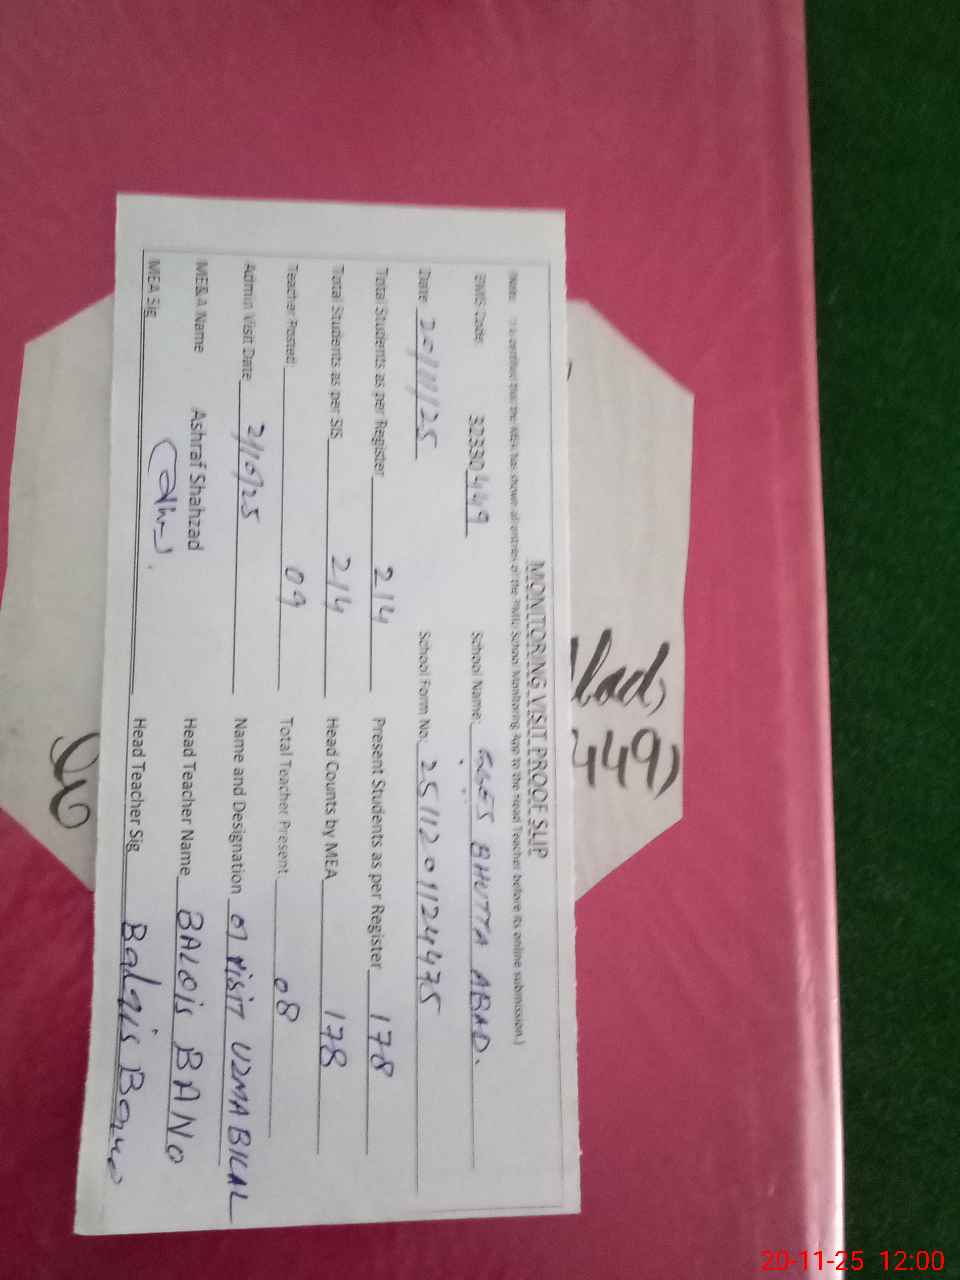 MONITORING VISIT PROOF SLIP
Note: It is certified that the MEA has shown all entries of the PMIU School Monitoring App to the Head Teacher before its online submission.)
EMIS Code: 32330449 School Name: GGES BHUTTA ABAD.
Date 20/11/25 School Form No: 2511201124475
Total Students as per Register 214 Present Students as per Register 178
Total Students as per SIS 214 Head Counts by MEA 178
Teacher Posted: 09 Total Teacher Present 08
Admin Visit Date Name and Designation 07 visit UZMA BILAL
MEA Name Ashraf Shahzad Head Teacher Name BALQIS BANO
MEA Sig Head Teacher Sig Balqis Bano
449)
20-11-25 12:00